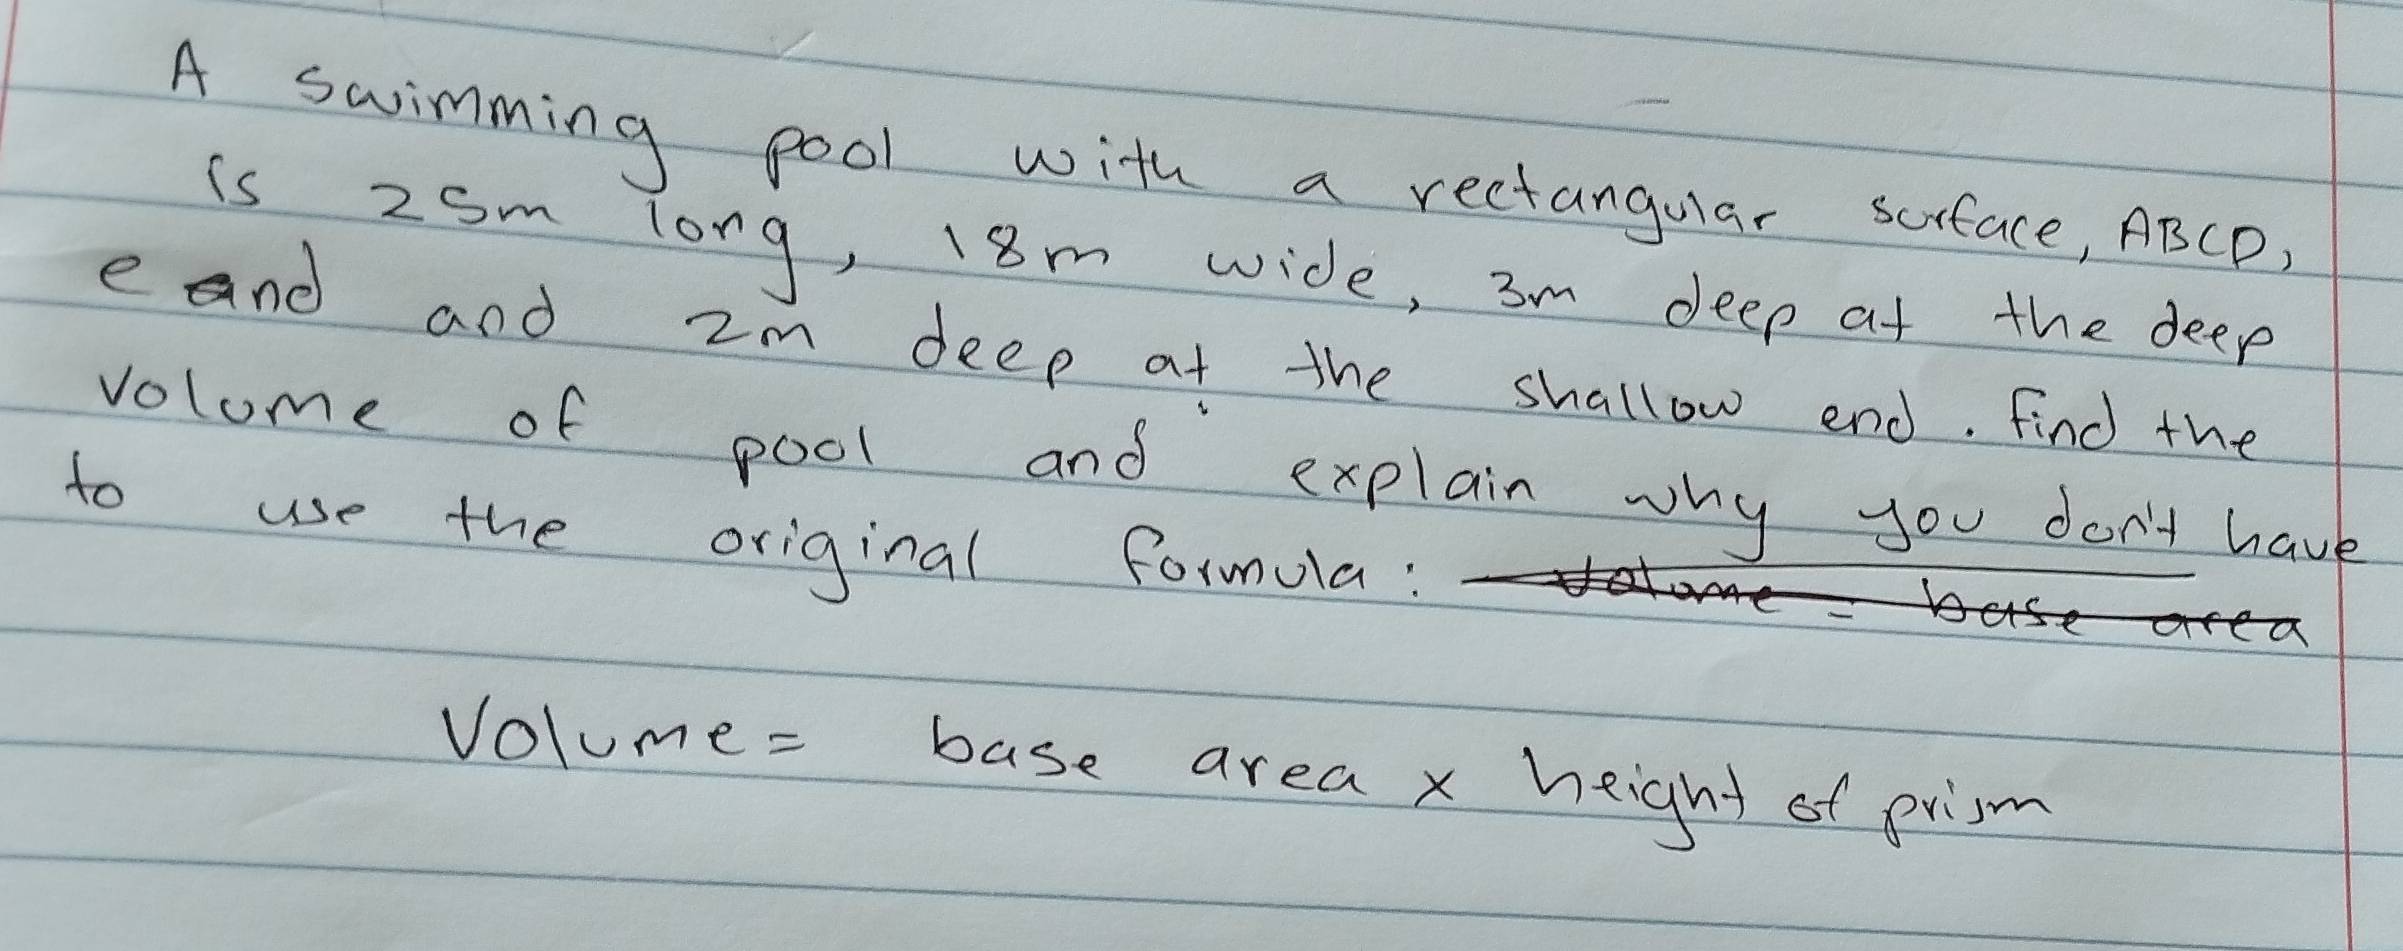 A swimming pool with a rectangular surface, ABCD,
is 25m long, 18m wide, 3m deep at the deep
e and and 2m deep at the shallow end. find the
volume of pool and explain why you don't have
to use the original formula: volume = base area
Volume = base area x height of prism